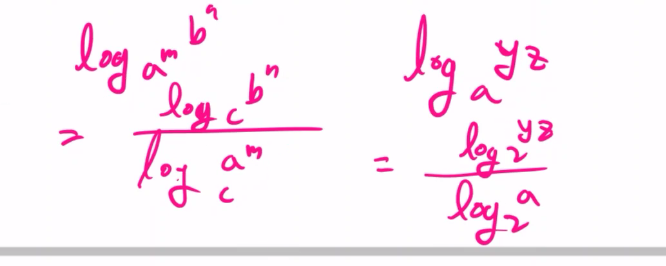 log_{a^m} b^n
= \frac{log_c b^n}{log_c a^m}
log_a yz
= \frac{log_2 yz}{log_2 a}